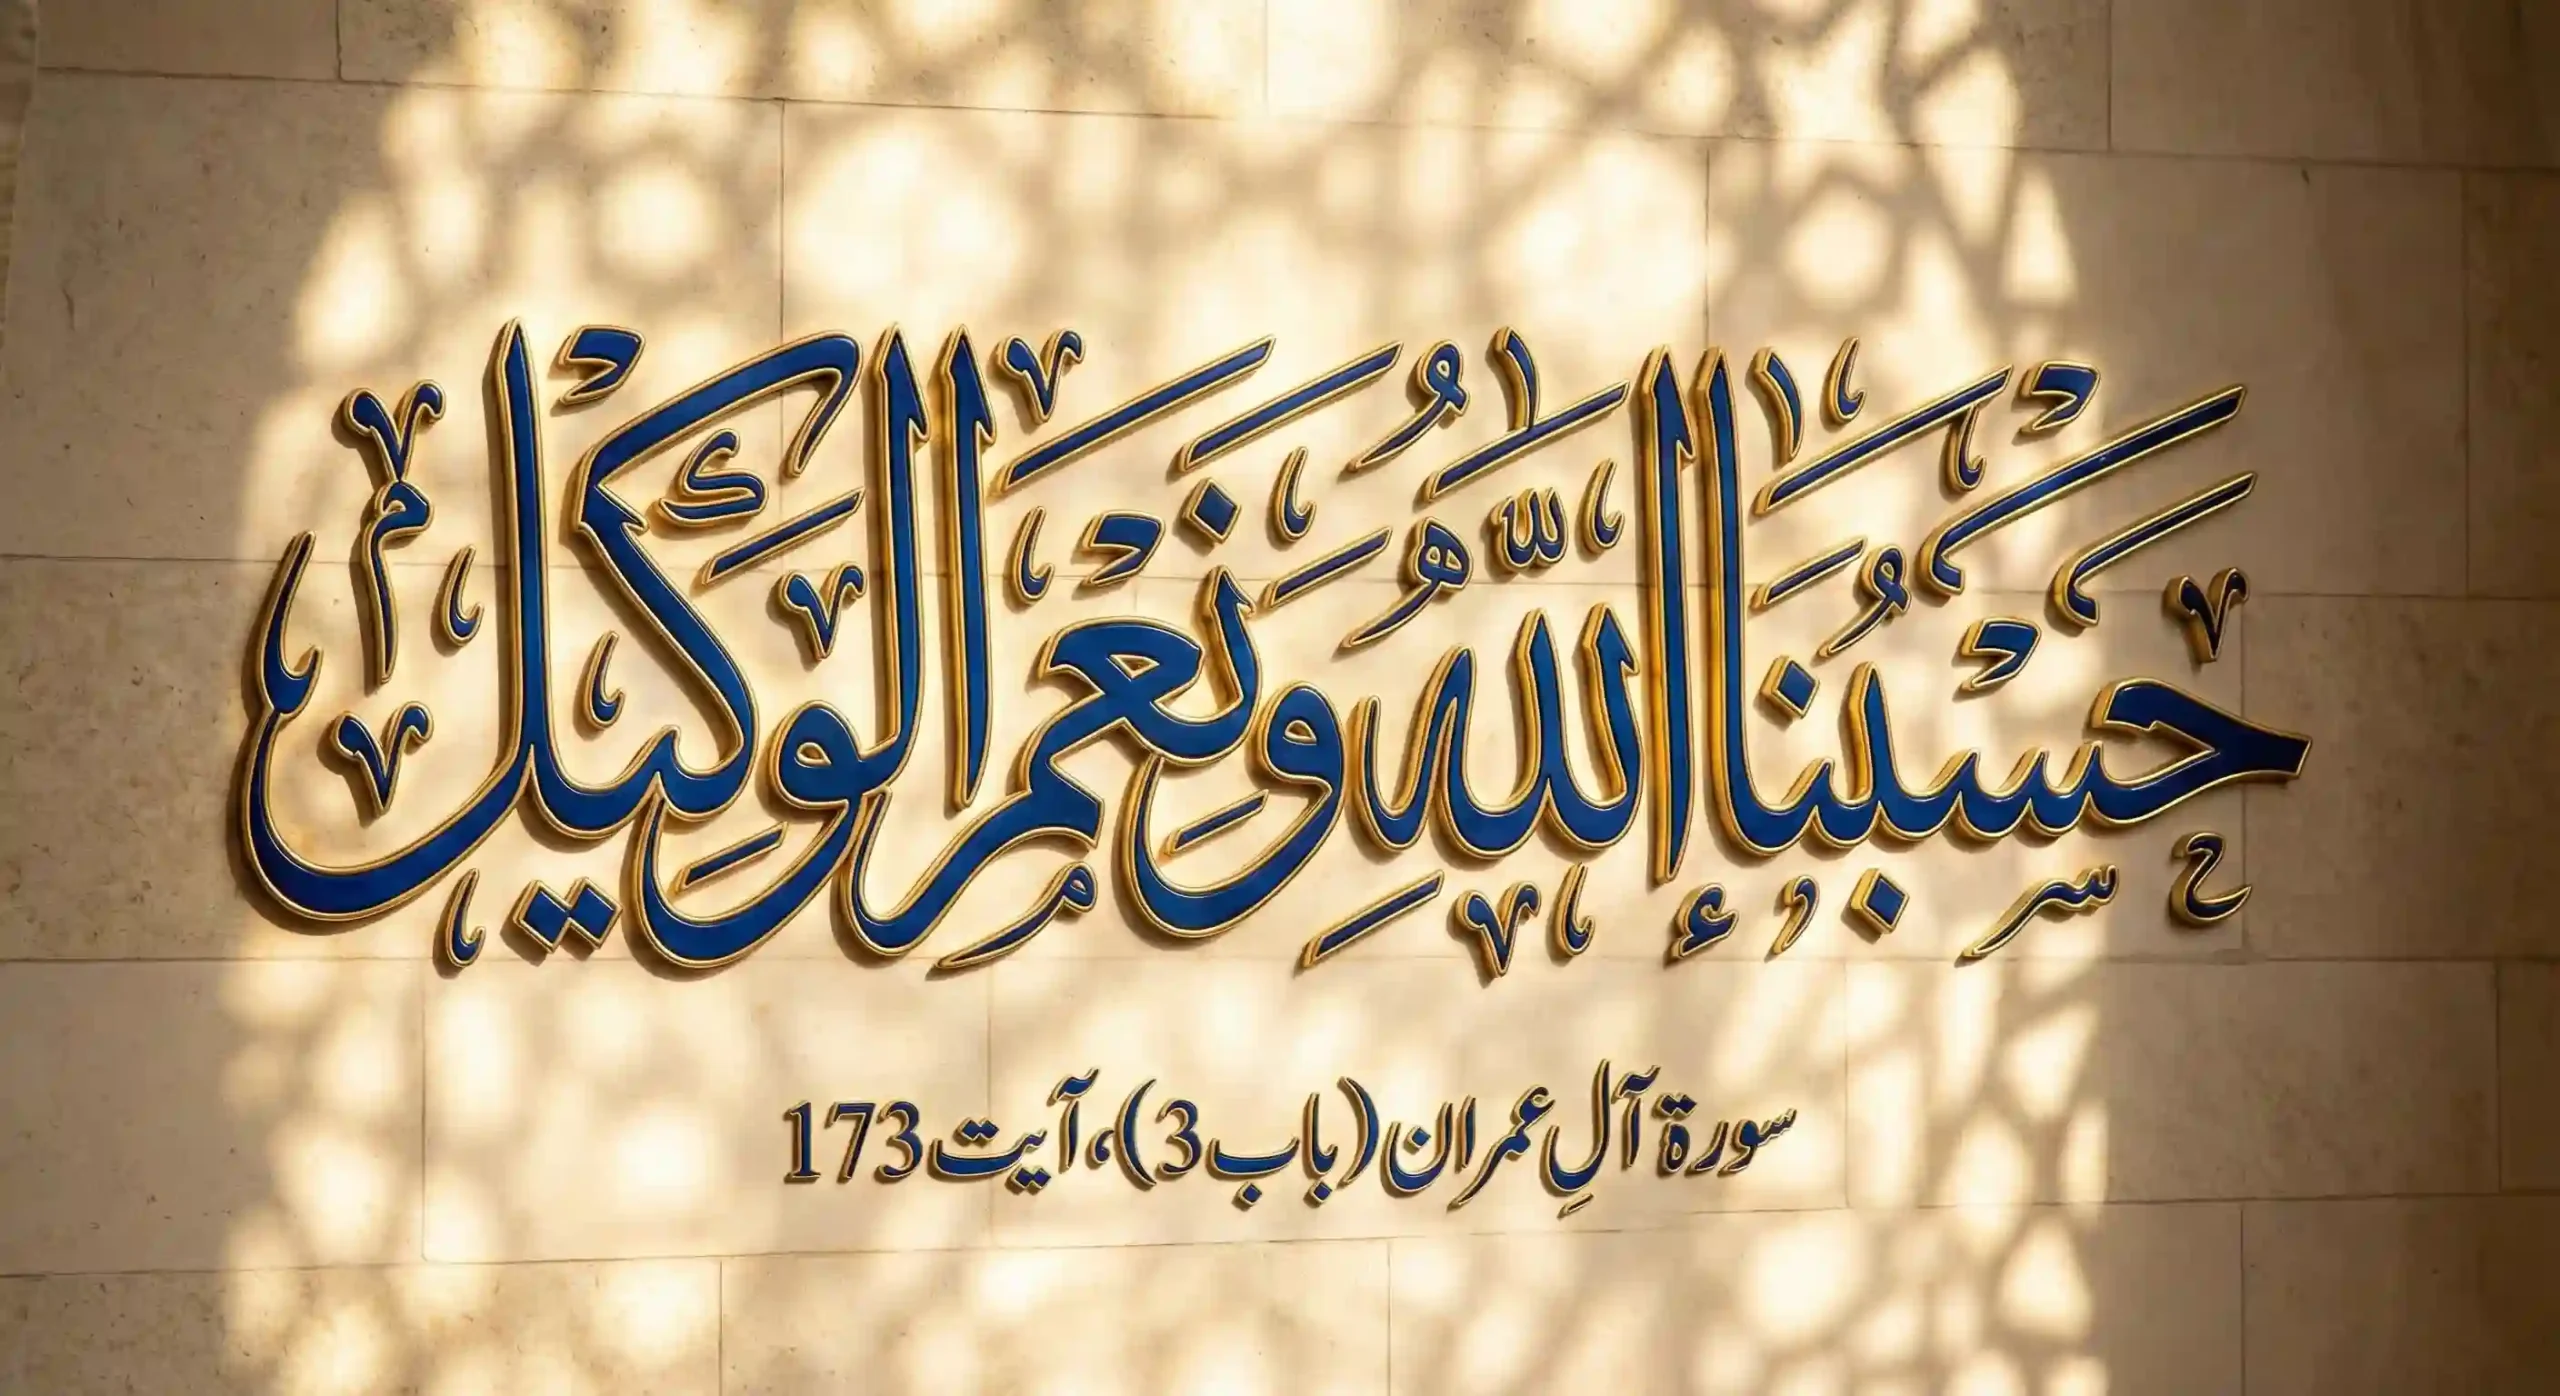 حَسْبُنَا اللَّهُ وَنِعْمَ الْوَكِيلُ
سورۃ آلِ عمران (باب 3)، آیت 173